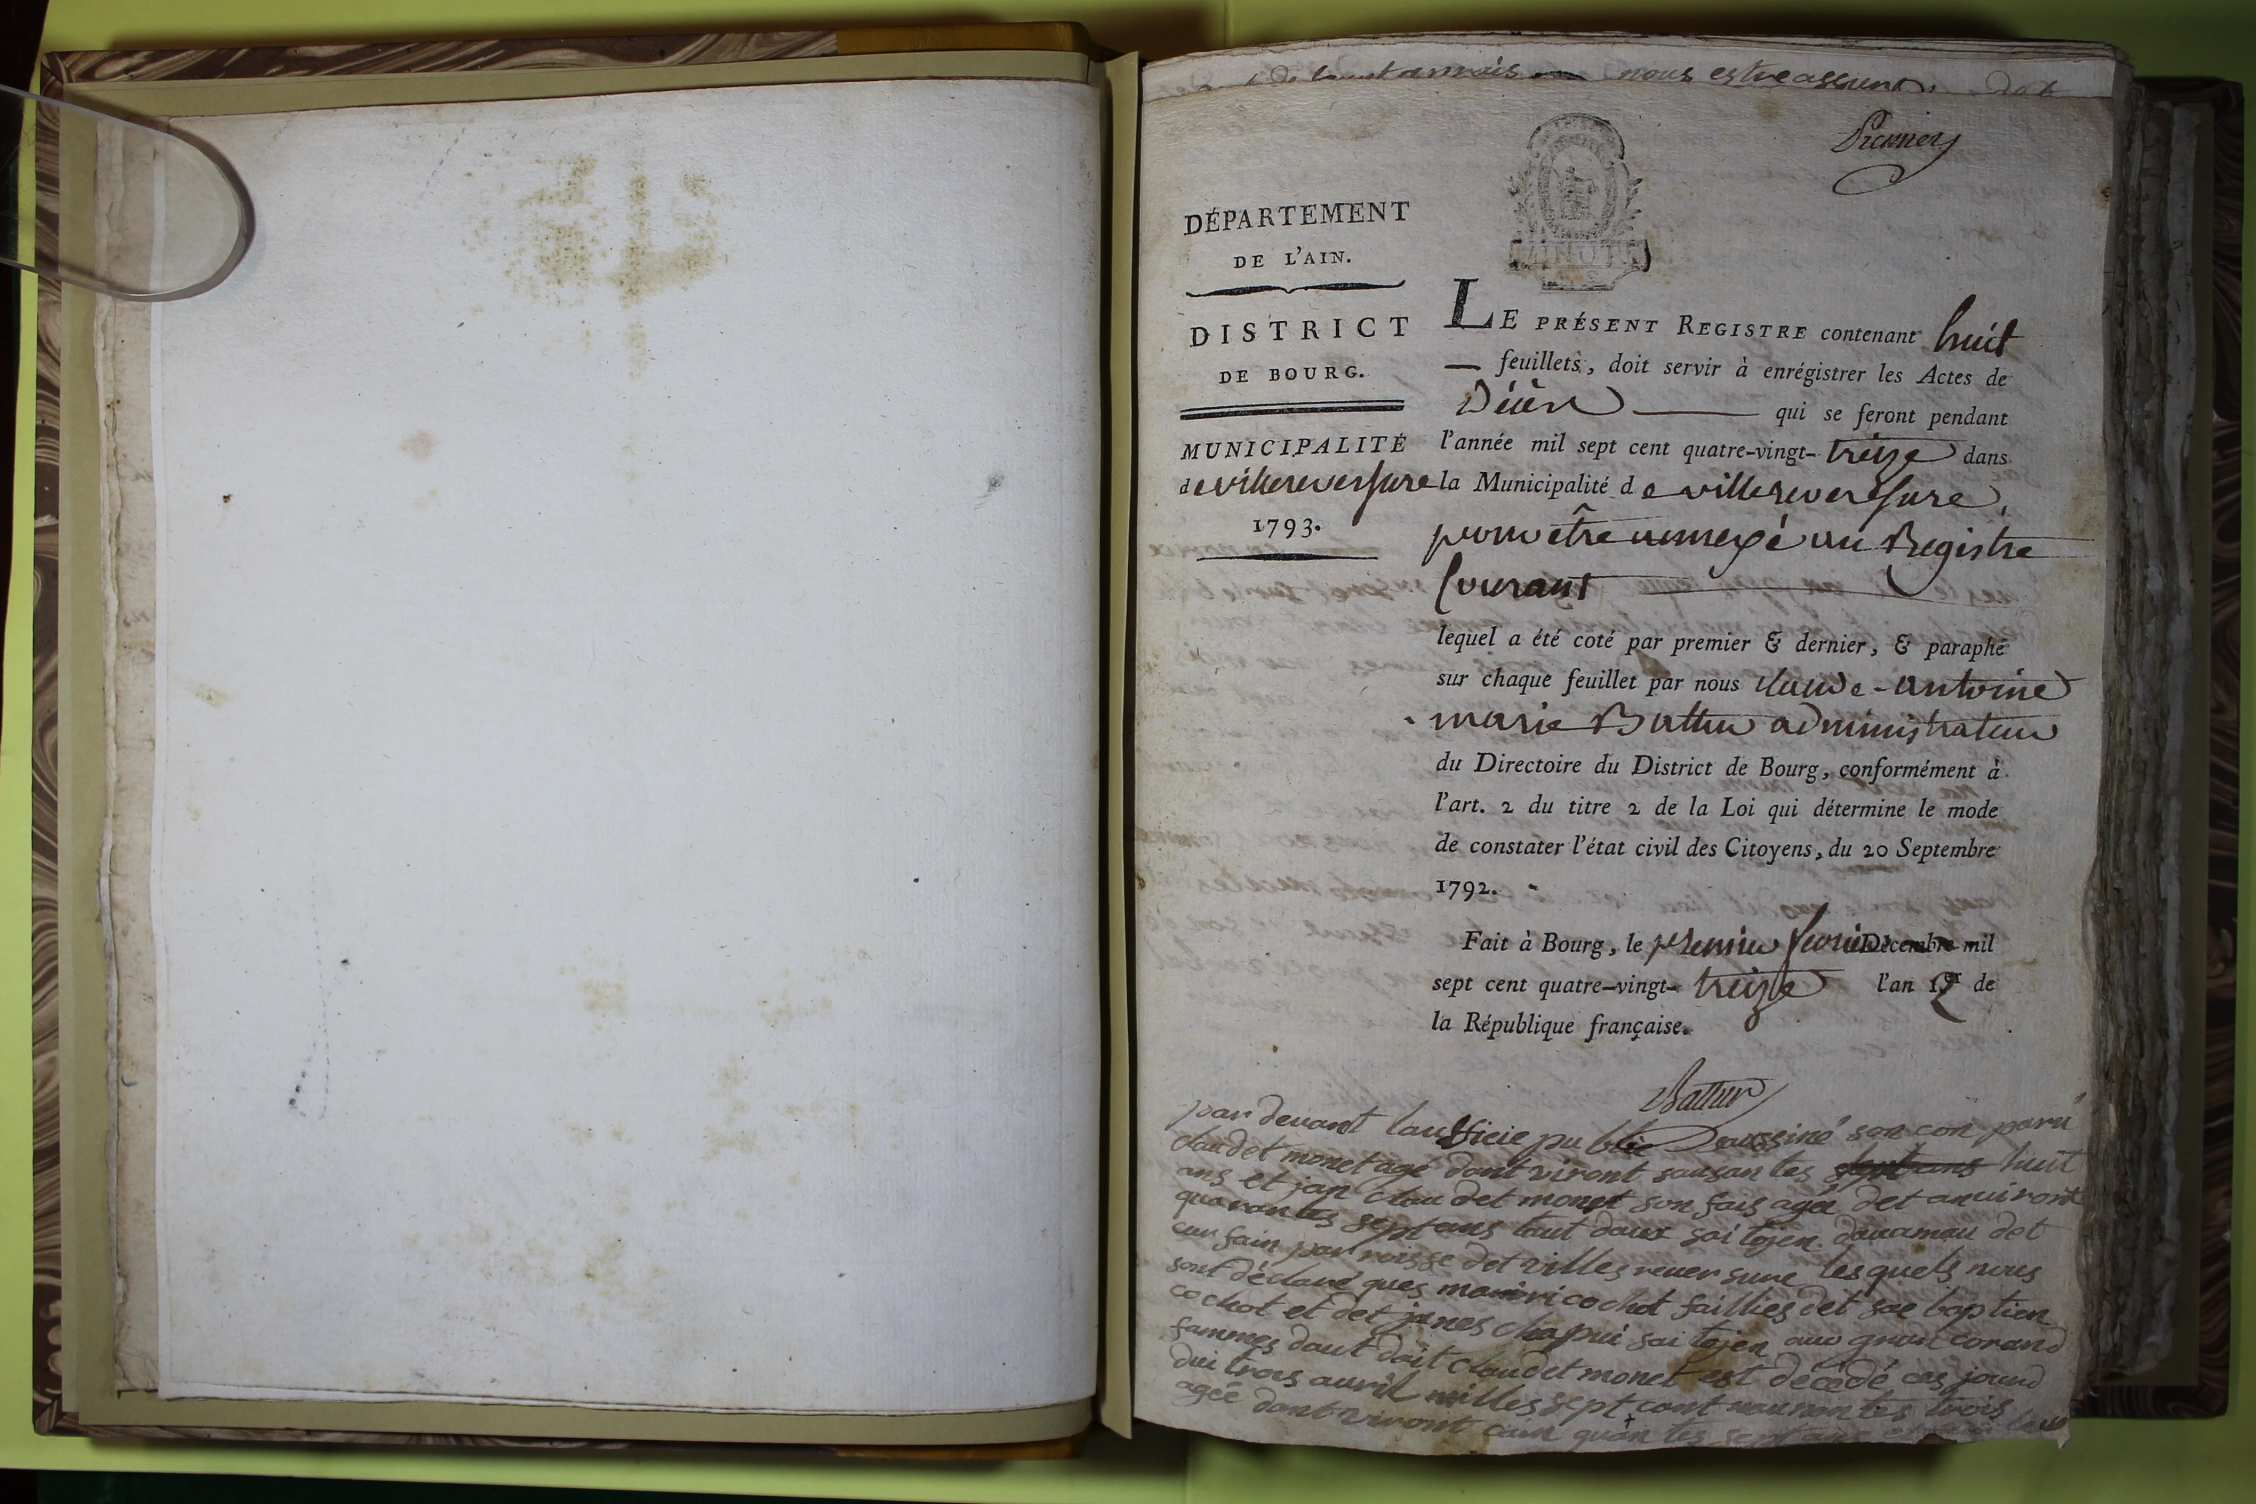 nous estre
Premier
DÉPARTEMENT
DE L'AIN.
DISTRICT
DE BOURG.
MUNICIPALITÉ
de villereversure
1793.
LE PRÉSENT REGISTRE contenant huit
— feuillets, doit servir à enrégistrer les Actes de
Décès — qui se feront pendant
l'année mil sept cent quatre-vingt-treize dans
la Municipalité de villereversure,
pour être annexé au Registre
Courant
lequel a été coté par premier & dernier, & paraphé
sur chaque feuillet par nous claude-antoine
marie Battur administrateur
du Directoire du District de Bourg, conformément à
l'art. 2 du titre 2 de la Loi qui détermine le mode
de constater l'état civil des Citoyens, du 20 Septembre
1792.
Fait à Bourg, le premier fevrier Décembre mil
sept cent quatre-vingt-treize l'an 2 de
la République française.
Battur
par devant lausficie publie sousiné son con paru
claudet monet agé dont viront sausan tes sept ans huit
ans et jan claudet monet son fais agé det anviront
quaran tes sept ans tout daux sai tojen dauamau det
cur fain par roisse det villes rever sure lesquels nous
sont déclaré ques mairi cochet faillies det sae baptien
cochot et det janes chapui sai tojen aux gran corand
fammes daut dait claudet monet est décédé cas jourd
dui trois auvril milles sept cant nau nan tes trois
agée dont viront cain quan tes sept ans